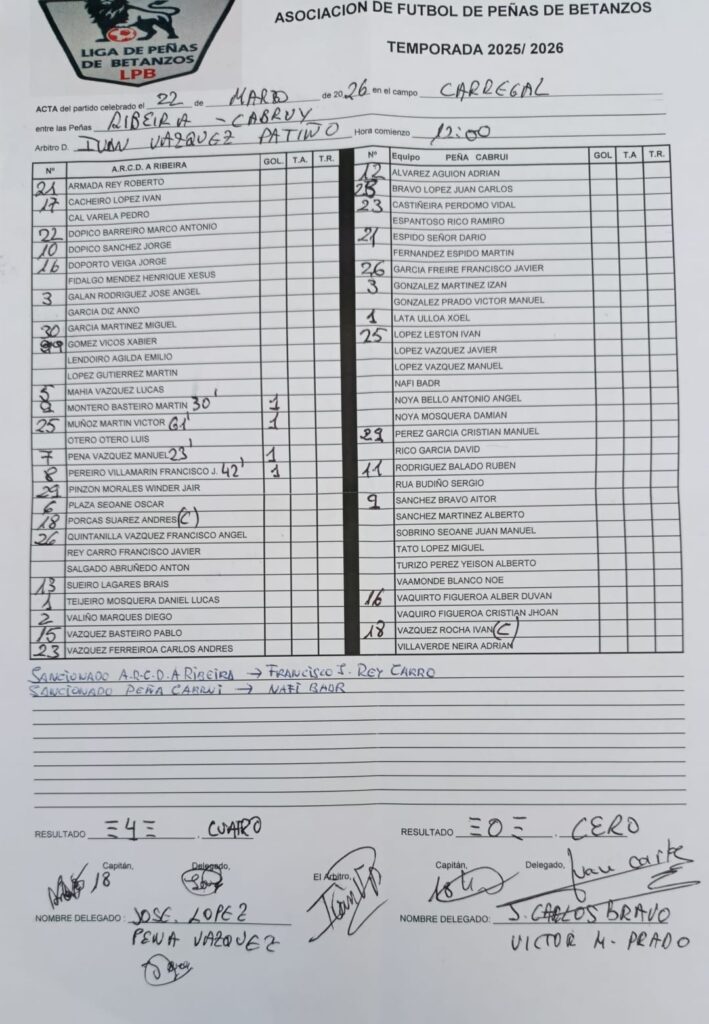 ASOCIACION DE FUTBOL DE PEÑAS DE BETANZOS
LIGA DE PEÑAS
DE BETANZOS
LPB
TEMPORADA 2025/ 2026
ACTA del partido celebrado el 22 de MARZO de 2026 en el campo CARREGAL
entre las Peñas RIBEIRA - CABRUY
Arbitro D. IVAN VAZQUEZ PATIÑO Hora comienzo 12:00
Nº A.R.C.D. A RIBEIRA GOL. T.A. T.R. Nº Equipo PEÑA CABRUI GOL T.A T.R.
21 ARMADA REY ROBERTO 12 ALVAREZ AGUION ADRIAN
17 CACHEIRO LOPEZ IVAN 28 BRAVO LOPEZ JUAN CARLOS
CAL VARELA PEDRO 23 CASTIÑEIRA PERDOMO VIDAL
22 DOPICO BARREIRO MARCO ANTONIO ESPANTOSO RICO RAMIRO
10 DOPICO SANCHEZ JORGE 21 ESPIDO SEÑOR DARIO
16 DOPORTO VEIGA JORGE FERNANDEZ ESPIDO MARTIN
FIDALGO MENDEZ HENRIQUE XESUS 26 GARCIA FREIRE FRANCISCO JAVIER
3 GALAN RODRIGUEZ JOSE ANGEL 3 GONZALEZ MARTINEZ IZAN
GARCIA DIZ ANXO GONZALEZ PRADO VICTOR MANUEL
30 GARCIA MARTINEZ MIGUEL 1 LATA ULLOA XOEL
GOMEZ VICOS XABIER 25 LOPEZ LESTON IVAN
LENDOIRO AGILDA EMILIO LOPEZ VAZQUEZ JAVIER
LOPEZ GUTIERREZ MARTIN LOPEZ VAZQUEZ MANUEL
5 MAHIA VAZQUEZ LUCAS NAFI BADR
9 MONTERO BASTEIRO MARTIN 30' 1 NOYA BELLO ANTONIO ANGEL
25 MUÑOZ MARTIN VICTOR 61' 1 NOYA MOSQUERA DAMIAN
OTERO OTERO LUIS 29 PEREZ GARCIA CRISTIAN MANUEL
7 PENA VAZQUEZ MANUEL 23' 1 RICO GARCIA DAVID
8 PEREIRO VILLAMARIN FRANCISCO J. 42' 1 11 RODRIGUEZ BALADO RUBEN
29 PINZON MORALES WINDER JAIR RUA BUDIÑO SERGIO
6 PLAZA SEOANE OSCAR 9 SANCHEZ BRAVO AITOR
18 PORCAS SUAREZ ANDRES (C) SANCHEZ MARTINEZ ALBERTO
26 QUINTANILLA VAZQUEZ FRANCISCO ANGEL SOBRINO SEOANE JUAN MANUEL
REY CARRO FRANCISCO JAVIER TATO LOPEZ MIGUEL
SALGADO ABRUÑEDO ANTON TURIZO PEREZ YEISON ALBERTO
13 SUEIRO LAGARES BRAIS VAAMONDE BLANCO NOE
1 TEIJEIRO MOSQUERA DANIEL LUCAS 16 VAQUIRTO FIGUEROA ALBER DUVAN
2 VALIÑO MARQUES DIEGO VAQUIRO FIGUEROA CRISTIAN JHOAN
15 VAZQUEZ BASTEIRO PABLO 18 VAZQUEZ ROCHA IVAN (C)
23 VAZQUEZ FERREIROA CARLOS ANDRES VILLAVERDE NEIRA ADRIAN
SANCIONADO A.R.C.D. A RIBEIRA → FRANCISCO J. REY CARRO
SANCIONADO PEÑA CABRUI → NAFI BADR
RESULTADO =4= CUATRO RESULTADO =0= CERO
Capitán, Delegado, El Arbitro, Capitán, Delegado,
18 18
NOMBRE DELEGADO: JOSE LOPEZ NOMBRE DELEGADO: J. CARLOS BRAVO
PENA VAZQUEZ VICTOR M. PRADO